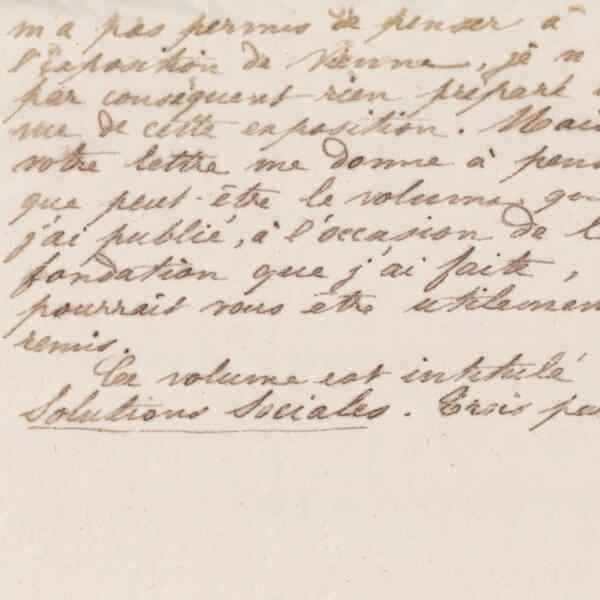 m'a pas permis de penser à
l'exposition de Vienne, je n
par conséquent rien préparé
vue de cette exposition. Mais
votre lettre me donne à pens
que peut-être le volume qu
j'ai publié, à l'occasion de l
fondation que j'ai faite,
pourrait vous être utilemen
remis.
Ce volume est intitulé
Solutions Sociales. Trois pa